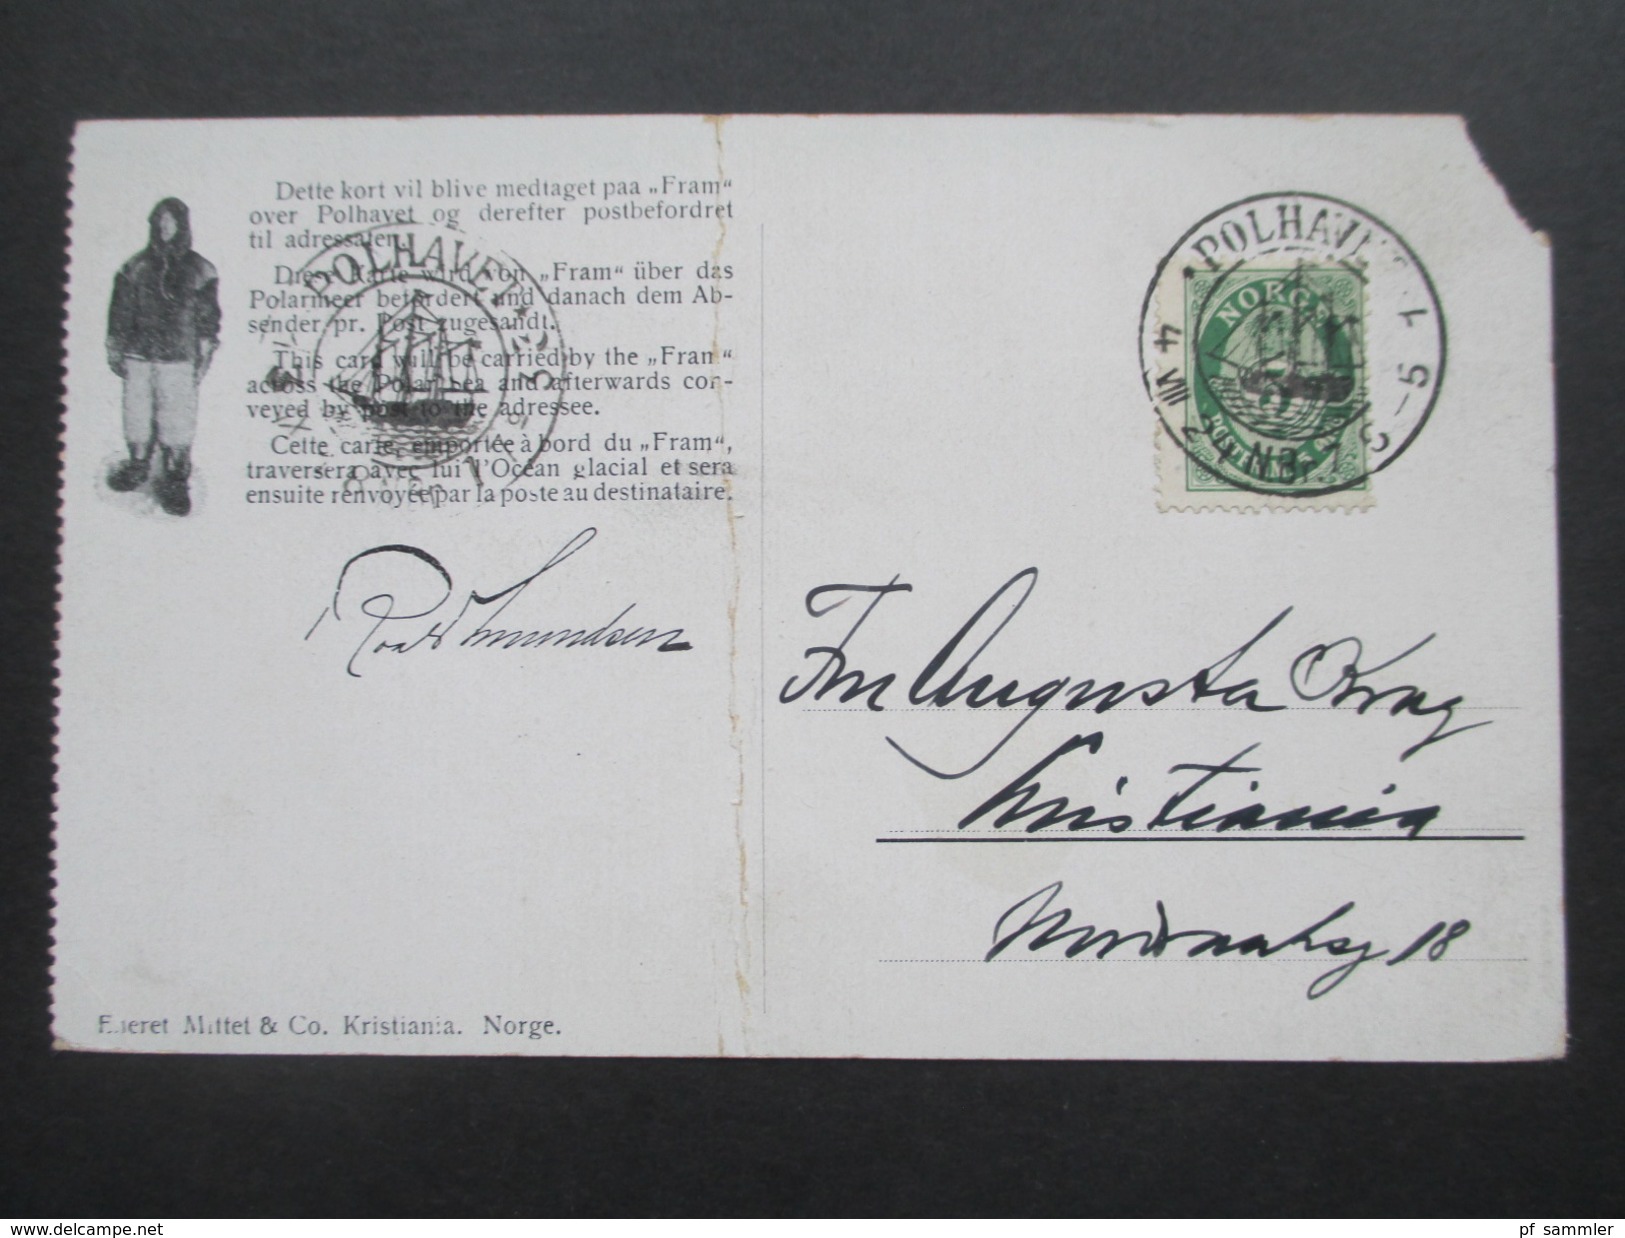 Dette kort vil blive medtaget paa „Fram“
over Polhavet og derefter postbefordret
til adressaten.
Diese Karte wird von „Fram“ über das
Polarmeer befördert und danach dem Ab-
sender pr. Post zugesandt.
This card will be carried by the „Fram“
across the Polar Sea and afterwards con-
veyed by post to the adressee.
Cette carte, emportée à bord du „Fram“,
traversera avec lui l'Océan glacial et sera
ensuite renvoyée par la poste au destinataire.
POLHAVET
Roald Amundsen
Eneret Mittet & Co. Kristiania. Norge.
POLHAVET
NORGE
5
Augusta Krag
Kristiania
18
www.delcampe.net
pf_sammler